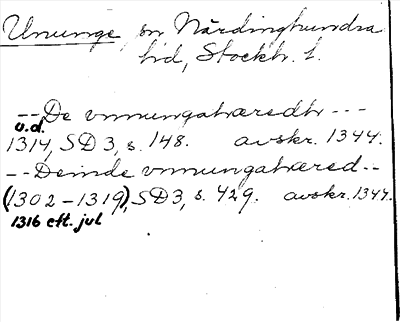 Ununge, sn Närdinghundra
hd, Stockh. l.
--De vnnungahæredh---
u.d.
1314, SD3, s. 148. avskr. 1344.
--Deinde vnnungahæred--
(1302-1319), SD3, s. 429. avskr. 1344.
1316 eft. jul